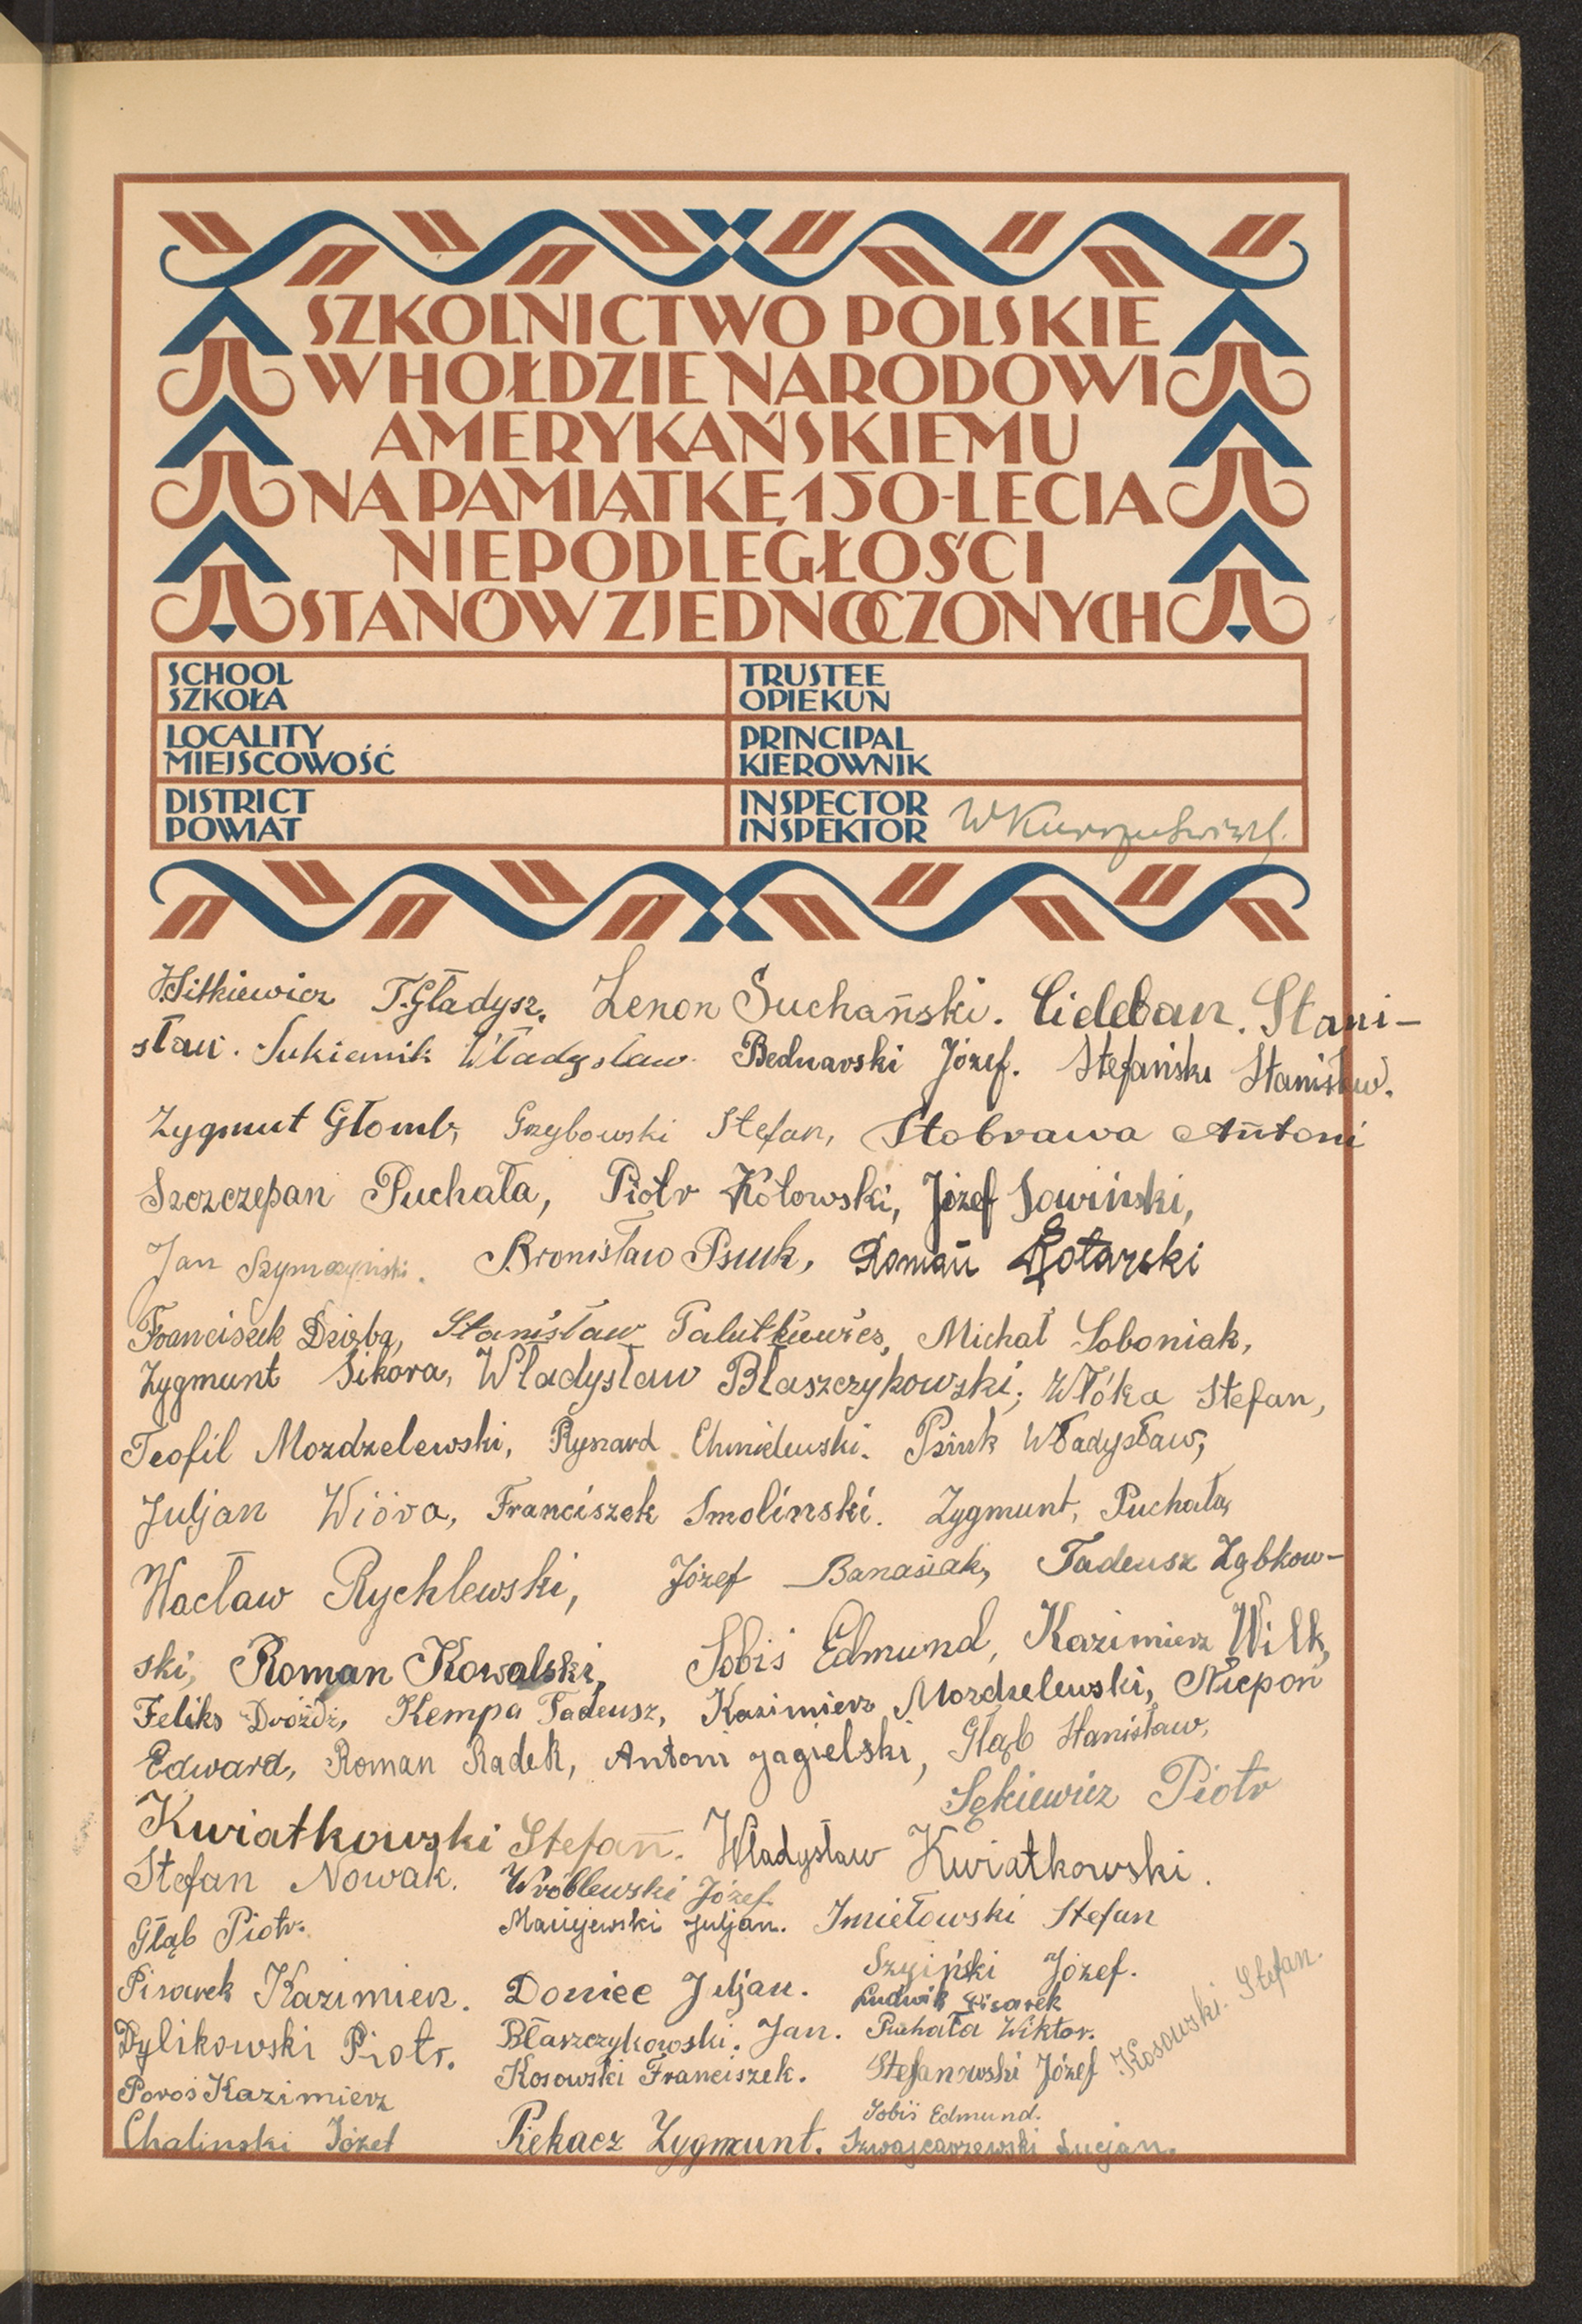 SZKOLNICTWO POLSKIE
W HOŁDZIE NARODOWI
AMERYKAŃSKIEMU
NA PAMIĄTKĘ 150-LECIA
NIEPODLEGŁOŚCI
STANÓW ZJEDNOCZONYCH
SCHOOL
SZKOŁA
TRUSTEE
OPIEKUN
LOCALITY
MIEJSCOWOŚĆ
PRINCIPAL
KIEROWNIK
DISTRICT
POWIAT
INSPECTOR
INSPEKTOR
T. Gładysz, Zenon Suchański. Stani-
sław. Sukiennik Władysław. Bednarski Józef. Stefański Stanisław.
Zygmunt Głomb, Grzybowski Stefan, Stobrawa Antoni
Szczczepan Puchała, Piotr Kotowski, Józef Sowiński,
Jan Szymczyński. Bronisław Psiuk, Roman Rotarski
Franciszek Dzięba, Stanisław Michał Soboniak,
Zygmunt Sikora, Władysław Błaszczykowski, Włóka Stefan,
Teofil Mozdzelewski, Ryszard Chmielewski. Psiuk Władysław,
Juljan Wióra, Franciszek Smolinski. Zygmunt, Puchała,
Wacław Rychlewski, Józef Banasiak, Tadeusz Ząbkow-
ski, Roman Kowalski, Sobiś Edmund, Kazimierz Wilk,
Feliks Dróżdż, Kempa Tadeusz, Kazimierz Mozdzelewski, Niepoń
Edward, Roman Radek, Antoni Jagielski, Głąb Stanisław,
Sękiewicz Piotr
Kwiatkowski Stefan. Władysław Kwiatkowski.
Stefan Nowak. Wróblewski Józef.
Głąb Piotr. Maciejewski Juljan. Imiełowski Stefan
Pisarek Kazimierz. Doniec Juljan. Józef.
Ludwik Pisarek
Dylikowski Piotr. Błaszczykowski. Jan. Puchała Wiktor.
Kosowski. Stefan.
Poroś Kazimierz Kosowski Franciszek. Stefanowski Józef
Sobiś Edmund.
Chalinski Józef Piekacz Zygmunt. Szwajcarzewski Lucjan.